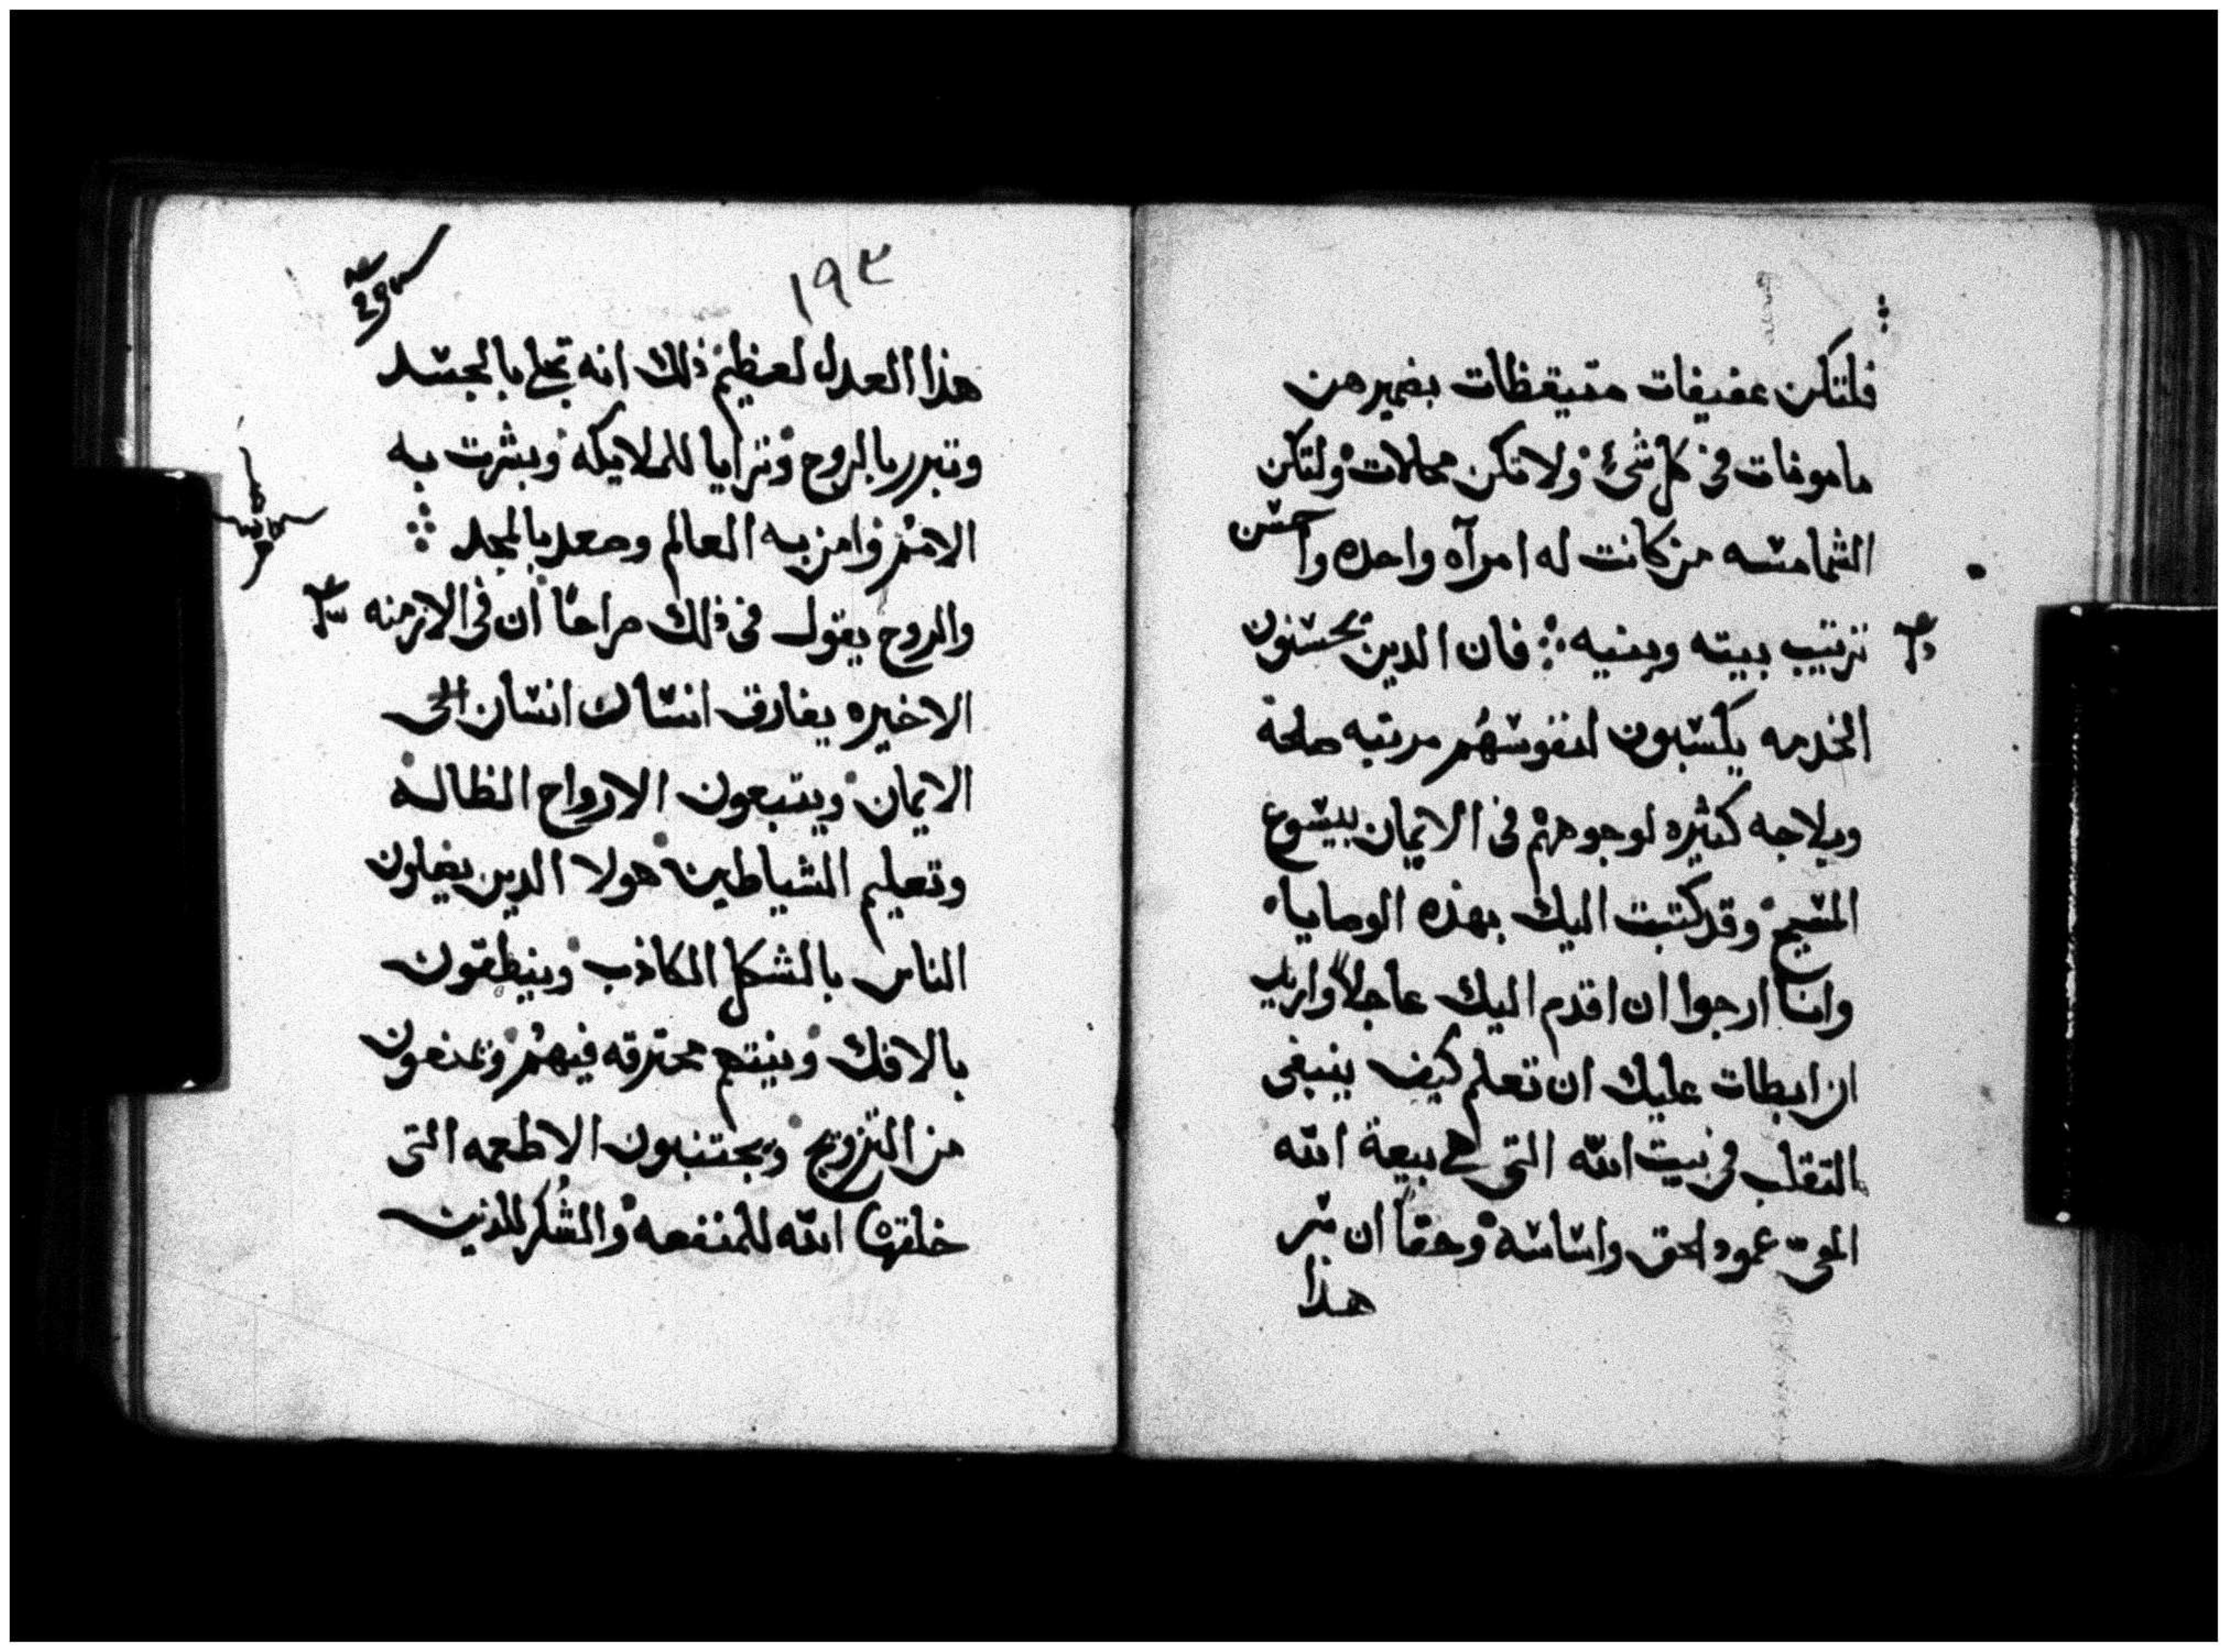 فلتكن عفيفات متيقظات بضميرهن
مامونات في كل شئ ولا تكن محالات ولتكن
الشمامسه من كانت له امرآه واحده واحسن
ترتيب بيته وبنيه ؞ فان الدين يحسنون
الخدمه يكسبون لنفوسهم مرتبه صلحة
وبلاجه كثيره لوجوههم في الايمان بيسوع
المسيح وقد كتبت اليك بهذه الوصايا
وانا ارجوا ان اقدم اليك عاجلاً واريد
ان ابطات عليك ان تعلم كيف ينبغي
التقلب في بيت الله التي هي بيعة الله
الحي عمود الحق واساسه وحقاً ان سر
هذا
١٩٣
هذا العدل لعظيم ذلك انه تجلى بالجسد
وتبرر بالروح وترايا للملايكه وبشرت به
الامم وامن به العالم وصعد بالمجد ؞
والروح يقول في ذلك صراحاً ان في الازمنه
الاخيره يفارق انسان انسان الى
الايمان ويتبعون الارواح الظاله
وتعليم الشياطين هولا الدين يضلون
الناس بالشكل الكاذب وينطقون
بالافك ونيتهم محترقه فيهم ويمنعون
من التزويج ويجتنبون الاطعمه التي
خلقها الله للمنفعه والشكر للذين